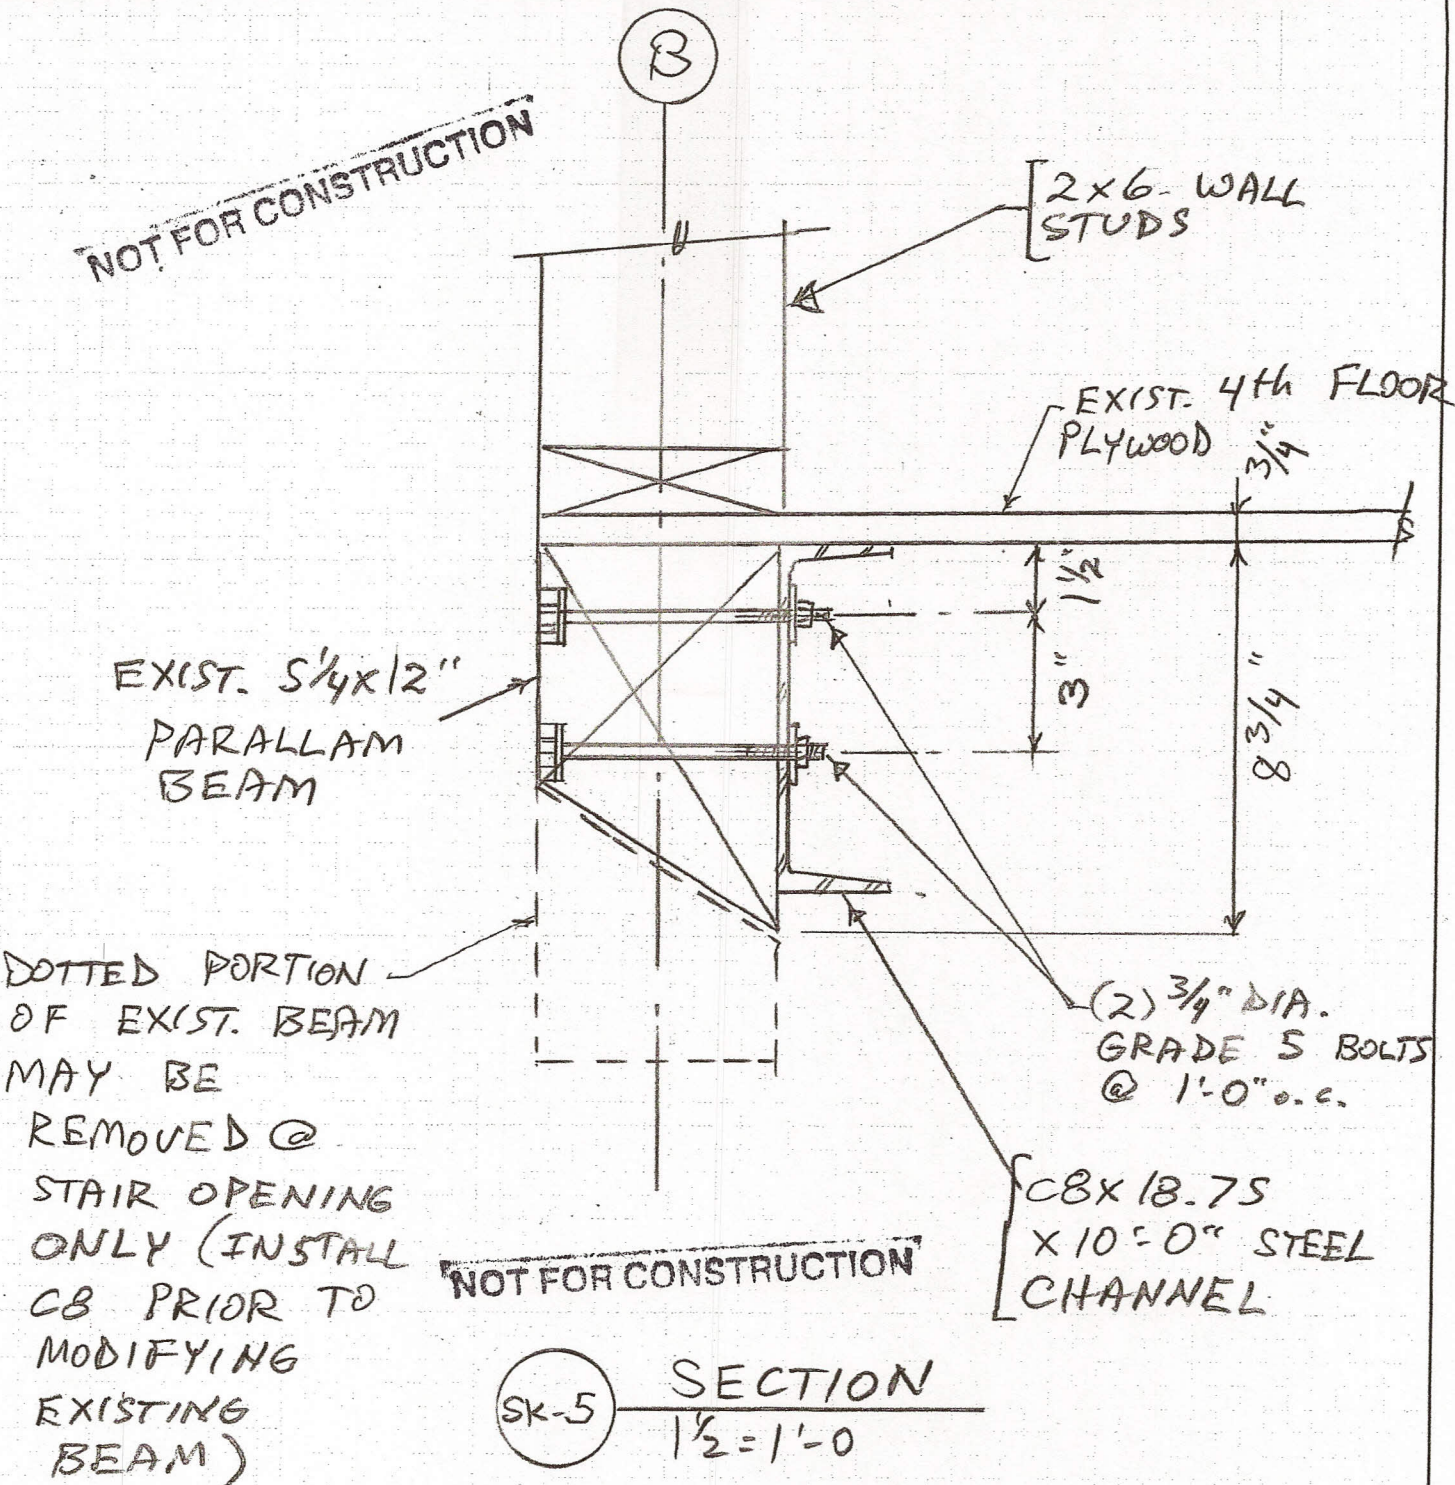 B
NOT FOR CONSTRUCTION
2x6- WALL
STUDS
EXIST. 4th FLOOR
PLYWOOD
3/4"
1 1/2"
3"
8 3/4"
EXIST. 5 1/4 x 12"
PARALLAM
BEAM
DOTTED PORTION
OF EXIST. BEAM
MAY BE
REMOVED @
STAIR OPENING
ONLY (INSTALL
C8 PRIOR TO
MODIFYING
EXISTING
BEAM)
(2) 3/4" DIA.
GRADE 5 BOLTS
@ 1'-0" o.c.
C8 x 18.75
x 10'-0" STEEL
CHANNEL
NOT FOR CONSTRUCTION
SK-5
SECTION
1 1/2 = 1'-0